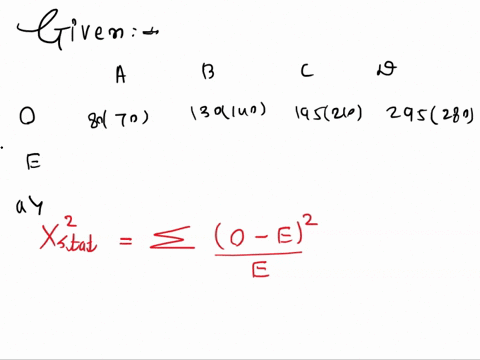 Given :→
A B C D
O 80(70) 130(140) 195(210) 295(280)
E
a)
X²stat = Σ (O - E)² / E